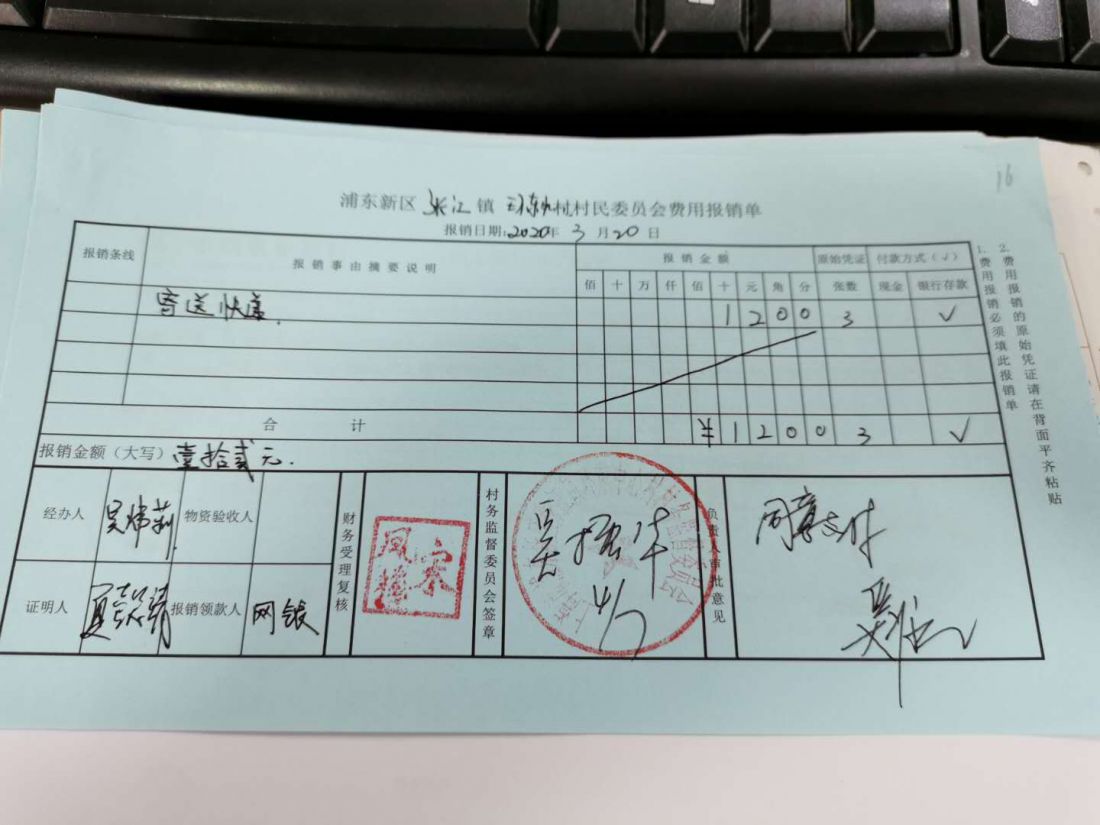 16
浦东新区张江镇环东村村民委员会费用报销单
报销日期:2020年3月20日
报销条线 报销事由摘要说明 报销金额 原始凭证 付款方式(√)
佰 十 万 仟 佰 十 元 角 分 张数 现金 银行存款
寄送快递. 1 2 0 0 3 √
合计 ¥ 1 2 0 0 3 √
报销金额(大写)壹拾贰元.
经办人 吴炜莉 物资验收人
证明人 报销领款人 网银
财务受理复核
宋凤楼
村务监督委员会签章
吴振华
4/7
负责人审批意见
同意支付
1.费用报销必须填此报销单
2.费用报销的原始凭证请在背面平齐粘贴